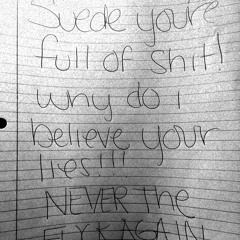 Suede you're
full of shit!
why do i
believe your
lies!!!
NEVER The
AGAIN